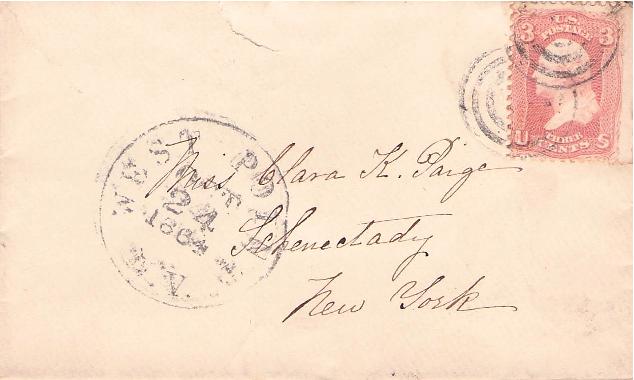 3 U.S. 3
POSTAGE
THREE
U CENTS S
WEST POINT
OCT
24
1864
N.Y.
Miss Clara K. Paige
Schenectady
New York